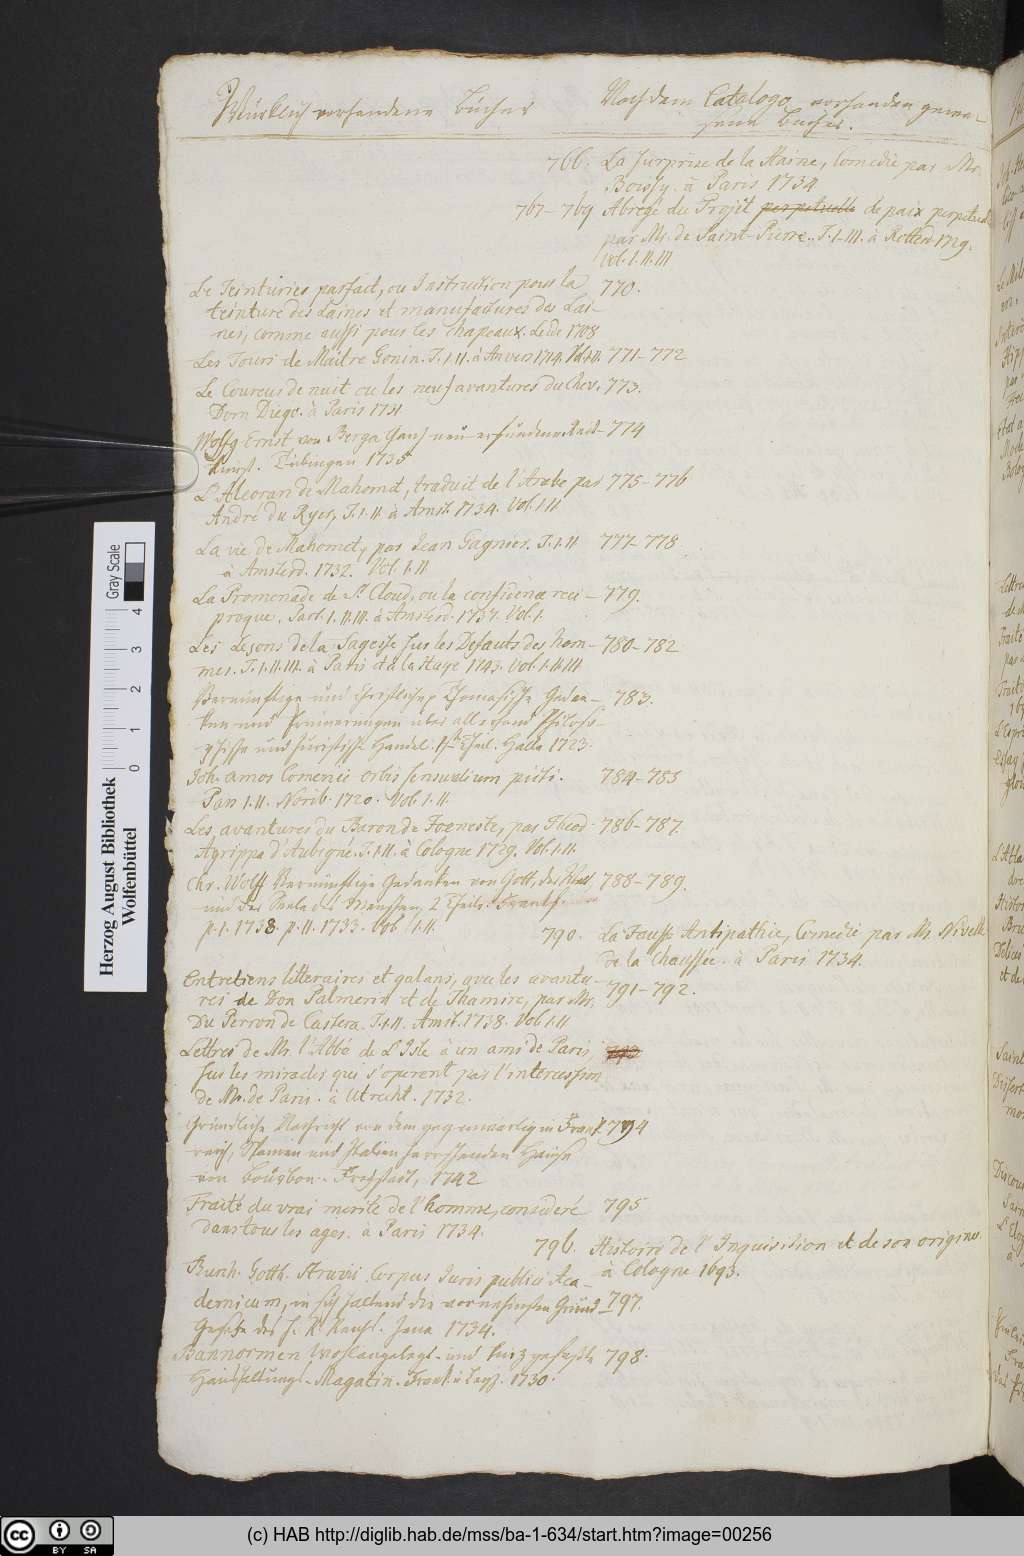 Würklich vorhandene Bücher
Nach dem Catalogo vorhanden gewe-
sene Bücher.
766. La surprise de la Haine, Comedie par Mr.
Boissy. à Paris 1734
767-769 Abregé du Projet perpetuelle de paix perpetuelle
par Mr. de Saint-Pierre. T. I-III. à Rotterd. 1729.
Vol. I. II. III
Le Teinturier parfait, ou Instruction pour la 770.
teinture des Laines et manufactures des Lai-
nes, comme aussi pour les Chapeaux. Leide 1708
Les Tours de Maitre Gonin. T. I. II. à Anvers 1714. Vol. I. II. 771-772
Le Coureur de nuit ou les neuf avantures du Chev. 773.
Dom Diego. à Paris 1731
Wolffg. Ernst von Berga Ganz neu erfundene Reit- 774
Kunst. Tübingen 1735
L'Alcoran de Mahomet, traduit de l'Arabe par 775-776
André du Ryer, T. I. II. à Amst. 1734. Vol. I. II
La vie de Mahomet, par Jean Gagnier. T. I. II 777-778
à Amsterd. 1732. Vol. I. II
La Promenade de St. Cloud, ou la confidence reci- 779.
proque. Part. I. II. III. à Amsterd. 1737. Vol. I.
Les Leçons de la Sagesse sur les Defauts des hom- 780-782
mes. T. I. II. III. à Paris et à la Haye 1743. Vol. I. II. III
Vernünftige und Christliche Thomasische Gedan- 783.
ken und Erinnerungen über allerhand Philoso-
phische und Juristische Händel. 1ster Theil. Halle 1723.
Joh. Amos Comenii Orbis sensualium picti. 784-785
Pars I. II. Norib. 1720. Vol. I. II.
Les avantures du Baron de Foeneste, par Theod. 786-787.
Agrippa d'Aubigné. T. I. II. à Cologne 1729. Vol. I. II.
Chr. Wolff Vernünftige Gedanken von Gott, der Welt 788-789.
und der Seele des Menschen, 2 Theile. Franckf.
p. I. 1738. p. II. 1733. Vol. I. II.
790. La Fausse Antipathie, Comedie par Mr. Nivelle
de la Chaussée. à Paris 1734.
Entretiens litteraires et galans, avec les avantu- 791-792.
res de Don Palmerin et de Thamire, par Mr.
Du Perron de Castera. T. I. II. Amst. 1738. Vol. I. II
Lettres de Mr. l'Abbé de L'Isle à un ami de Paris, 793
sur les miracles qui s'operent par l'intercession
de Mr. de Paris. à Utrecht. 1732.
Gründliche Nachricht von dem gegenwärtig in Frank- 794
reich, Spanien und Italien herrschenden Hause
von Bourbon. Freystadt, 1742
Traité du vrai merite de l'homme, consideré 795
dans tous les ages. à Paris 1734.
796. Histoire de l'Inquisition et de son origine.
à Cologne 1693.
Burch. Gotth. Struvii Corpus Juris publici Aca-
demicum, in sich haltend die vornehmsten Grund- 797.
Gesetze des H. R. Reichs. Jena 1734.
Bannormen Wohlangelegt- und kurz gefaßte 798.
Haushaltungs-Magatin. Franck. u. Leipz. 1730.
Herzog August Bibliothek
Wolfenbüttel
Gray Scale
0 1 2 3 4
cc BY SA
(c) HAB http://diglib.hab.de/mss/ba-1-634/start.htm?image=00256